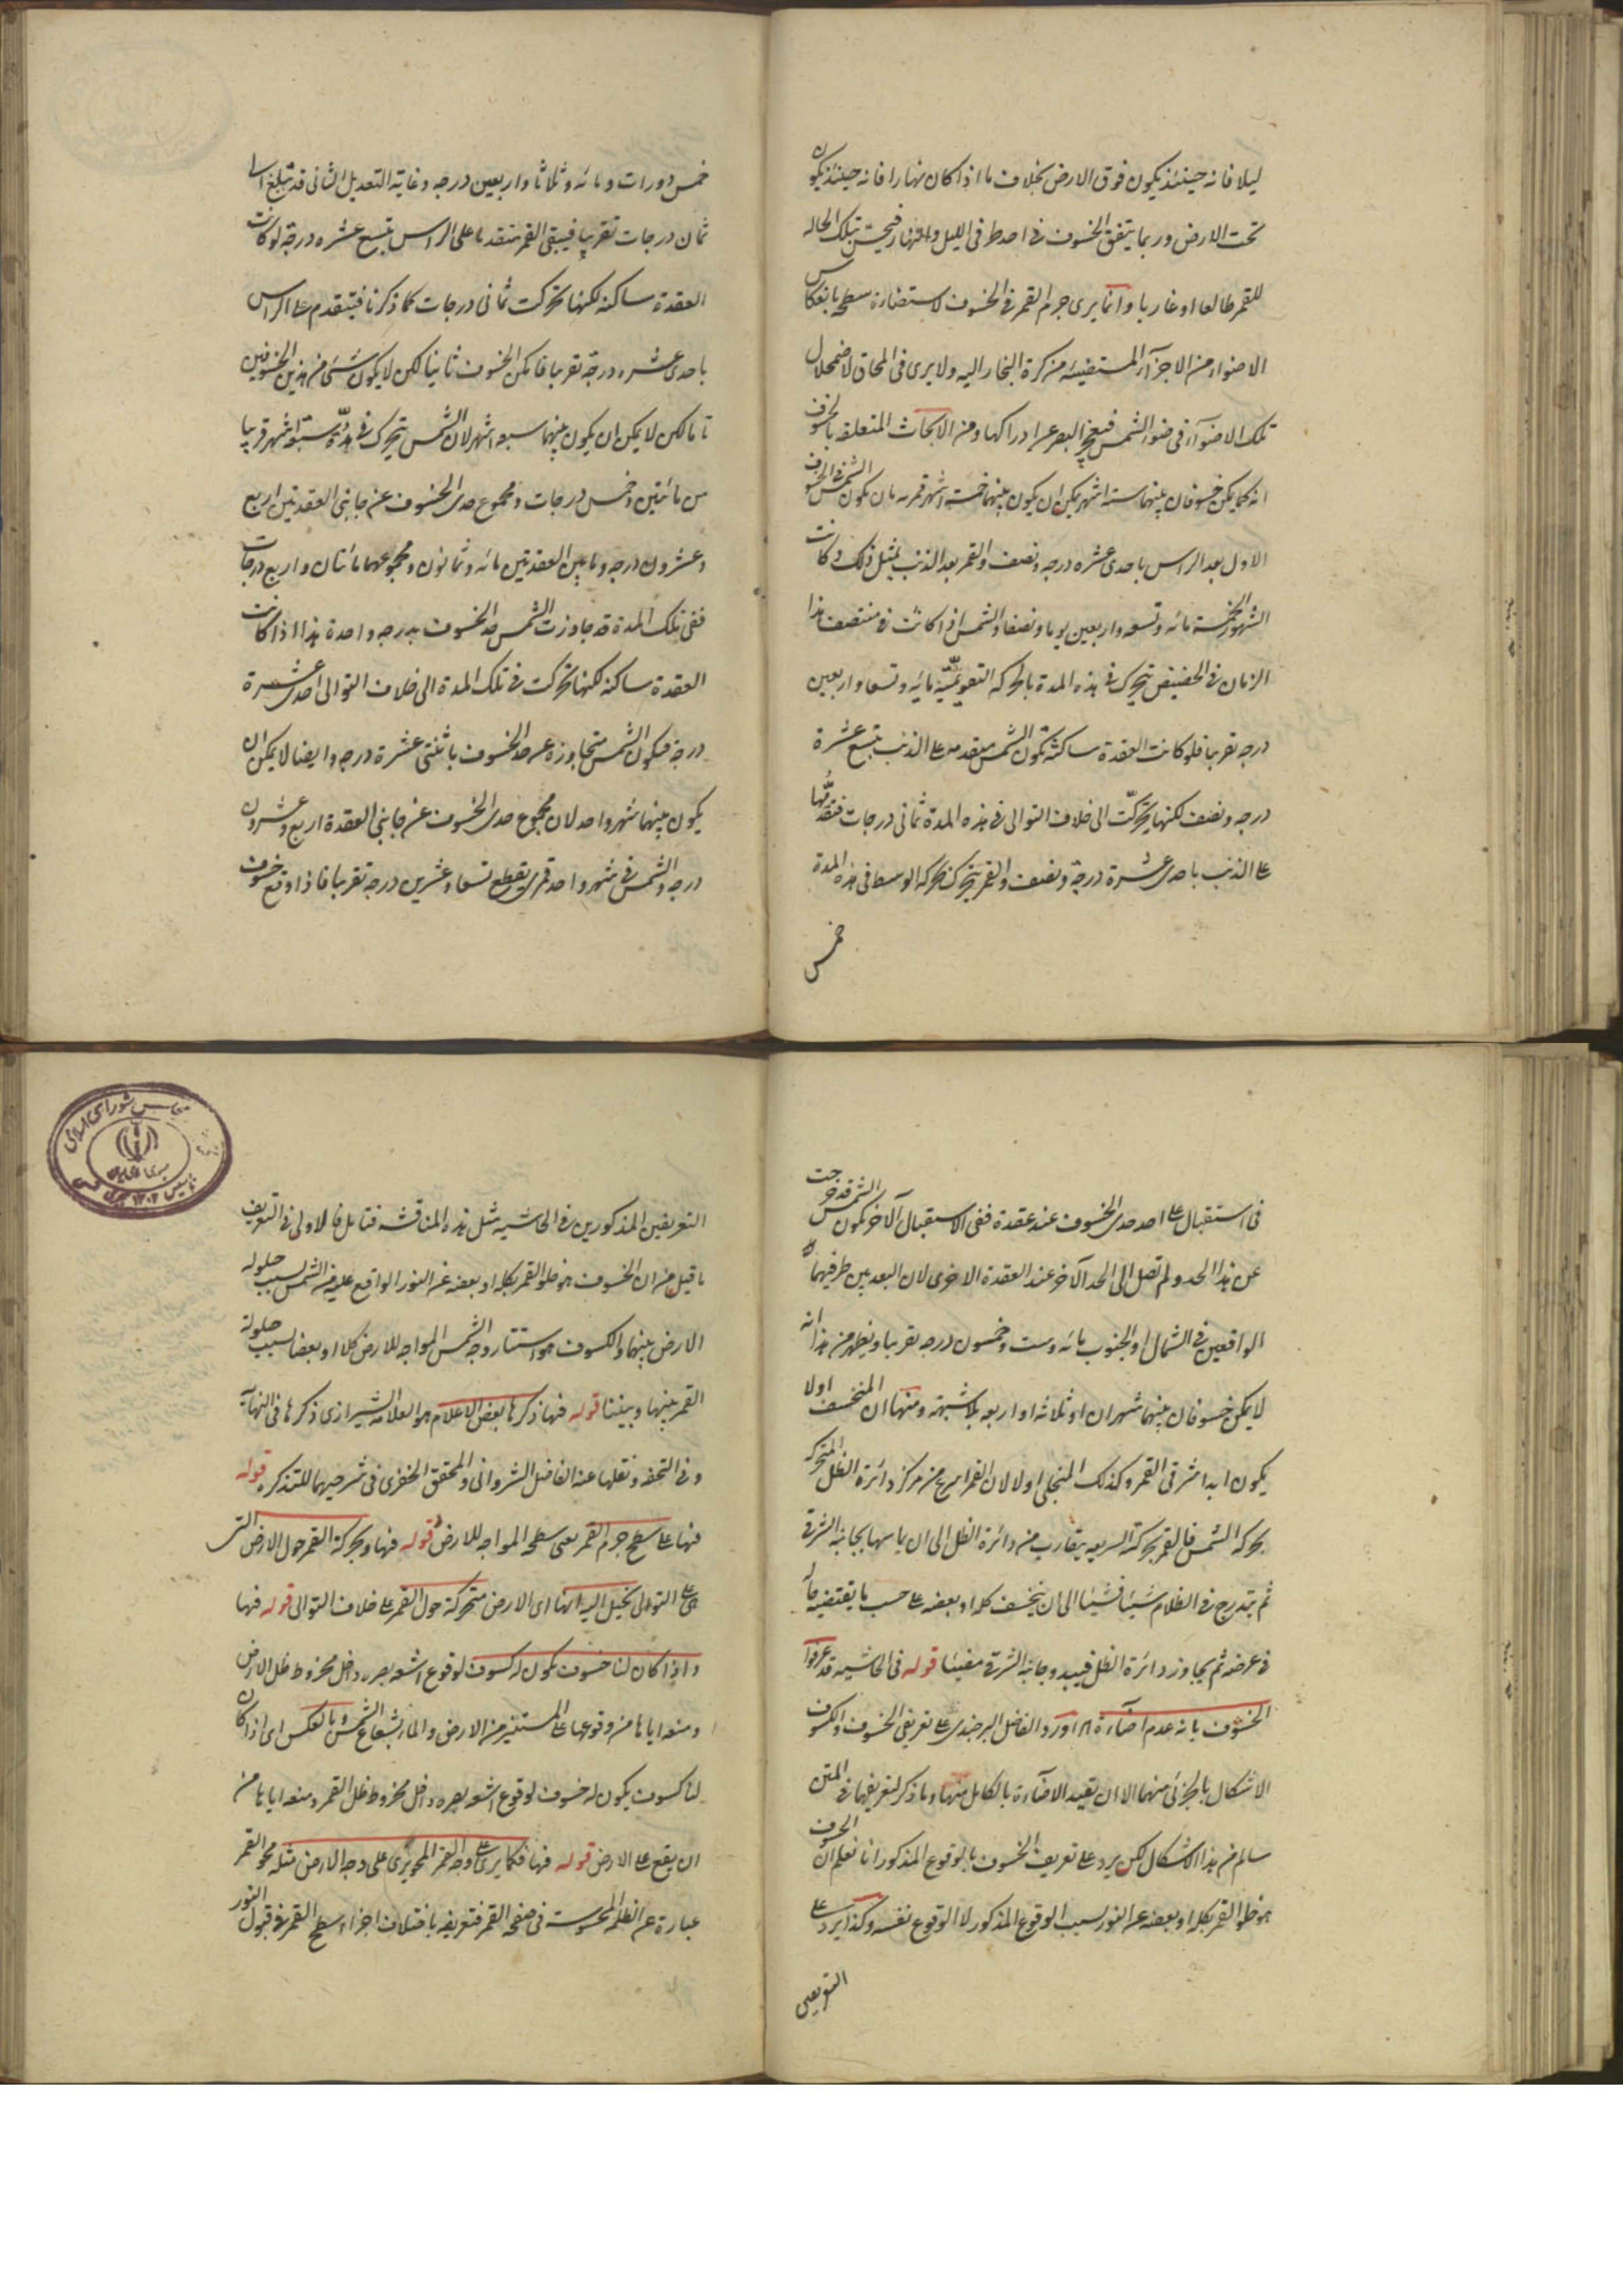 ليلا فانه حينئذ يكون فوق الارض بخلاف ما اذا كان نهارا فانه حينئذ يكون
تحت الارض وربما يتفق الخسوف فى احد طرفى الليل والنهار فيحس بتلك الحاله
للقمر طالعا او غاربا وانما يرى جرم القمر فى الخسوف لاستضاءة سطحه بانعكاس
الاضواء من الاجزآء المستضيئه من كرة البخار اليه ولا يرى فى المحاق لاضمحلال
تلك الاضوآء فى ضوء الشمس فيعجز البصر عن ادراكها ومن الابحاث المتعلقه بالخسوف
انه كما يمكن خسوفان بينهما سته اشهر يمكن ان يكون بينهما خمسة اشهر قمريه بان يكون الشمس فى الخسوف
الاول بعد الراس باحدى عشره درجه ونصف والقمر بعد الذنب بمثل ذلك وكانت
الشهور الخمسة مائه وتسعه واربعين يوما ونصفا والشمس اذا كانت فى منتصف هذا
الزمان فى الحضيض يتحرك فى هذه المدة بالحركه التقويميّه مائه وتسعا واربعين
درجه تقريبا فلو كانت العقدة ساكنة تكون الشمس متقدمه على الذنب بتسع عشرة
درجه ونصف لكنها تحركّت الى خلاف التوالى فى هذه المدة ثمانى درجات فتقدُّمها
على الذنب باحدى عشرة درجة ونصف والقمر يتحرك بحركه الوسط فى هذه المدة
خمس
خمس دورات ومائه وثلاثا واربعين درجه وغاية التعديل الثانى قد تبلغ الى
ثمان درجات تقريبا فيبقى القمر متقدما على الراس بتسع عشره درجة لو كانت
العقدة ساكنه لكنها تحركت ثمانى درجات كما ذكرنا فيتقدم على الراس
باحدى عشره درجة تقريبا فامكن الخسوف ثانيا لكن لا يكون شىء من هذين الخسوفين
تاما لكن لا يمكن ان يكون بينهما سبعه اشهر لان الشمس يتحرك فى مدّة سبعه اشهر قريبا
من مائتين وخمس درجات ومجموع حدى الخسوف عن جانبى العقدتين اربع
وعشرون درجه وما بين العقدتين مائه وثمانون ومجموعهما مائتان واربع درجات
ففى تلك المدة قد جاوزت الشمس حد الخسوف بدرجه واحدة هذا اذا كانت
العقدة ساكنه لكنها تحركت فى تلك المدة الى خلاف التوالى احدى عشرة
درجة فيكون الشمس متجاوزة عن حد الخسوف باثنتى عشرة درجه وايضا لا يمكن ان
يكون بينهما شهر واحد لان مجموع حدى الخسوف عن جانبى العقدة اربع وعشرون
درجه والشمس فى شهر واحد قمرى يقطع تسعا وعشرين درجه تقريبا فاذا وقع خسوف
فى استقبال على احد حدى الخسوف عند عقدة ففى الاستقبال الآخر يكون الشمس قد خرجت
عن هذا الحد ولم تصل الى الحد الآخر عند العقدة الاخرى لان البعد بين طرفيهما
الواقعين فى الشمال او الجنوب مائه وست وخمسون درجه تقريبا ويظهر من هذا انه
لا يمكن خسوفان بينهما شهران او ثلاثه او اربعه بلا شبهة ومنها ان المنخسف اولا
يكون ابدا شرقى القمر وكذلك المنجلى اولا لان القمر اسرع من مركز دائرة الظل المتحركه
بحركه الشمس فالقمر بحركته السريعه يتقارب من دائرة الظل الى ان يماسها بجانبه الشرقى
ثم يتدرج فى الظلام شيئا فشيئا الى ان ينخسف كله او بعضه على حسب ما يقتضيه حاله
فى عرضه ثم يجاوز دائرة الظل فيبدو جانبه الشرقى مضيئا قوله فى الحاشيه قد عرفوا
الخسوف بانه عدم اضآءة اه اورد الفاضل البرجندى على تعريفى الخسوف والكسوف
الاشكال بالجزئى منهما الا ان يقيد الاضآءة بالكامل منها وما ذكر لتعريفهما فى المتن
سالم من هذا الاشكال لكن يرد على تعريف الخسوف بالوقوع المذكور انا نعلم ان الخسوف
هو خلو القمر بكله او بعضه عن النور بسبب الوقوع المذكور لا الوقوع نفسه وكذا يرد على
التعريفين
التعريفين المذكورين فى الحاشيه مثل هذه المناقشه فتامل فالاولى فى التعريف
ما قيل من ان الخسوف هو خلو القمر بكله او بعضه عن النور الواقع عليه من الشمس بسبب حلولة
الارض بينهما والكسوف هو استتار وجه الشمس المواجه للارض كلا او بعضا بسبب حلولة
القمر بينها وبيننا قوله فيها ذكرها بعض الاعلام هو العلامه الشيرازى ذكرها فى النهايه
وفى التحفه ونقلها عنه الفاضل الشروانى والمحقق الخفرى فى شرحيهما للتذكره قوله
فيها على سطح جرم القمر يعنى سطحه المواجه للارض قوله فيها وبحركة القمر حول الارض التى
هى على التوالى يخيل اليه انها اى الارض متحركة حول القمر على خلاف التوالى قوله فيها
واذا كان لنا خسوف يكون له كسوف لوقوع اشعه بصره داخل مخروط ظل الارض
ومنعه اياها من وقوعها على المستنير من الارض والماء بشعاع الشمس وبالعكس اى اذا كان
لنا كسوف يكون له خسوف لوقوع اشعه بصره داخل مخروط ظل القمر ومنعه اياها من
ان يقع على الارض قوله فيها فكما يرى على وجه القمر المحو يرى على وجه الارض مثله محو القمر
عبارة عن الظلمه المحسوسة فى صفحه القمر فتعريفه باختلاف اجزاء سطح القمر فى قبول النور
مجلس شوراى اسلامى